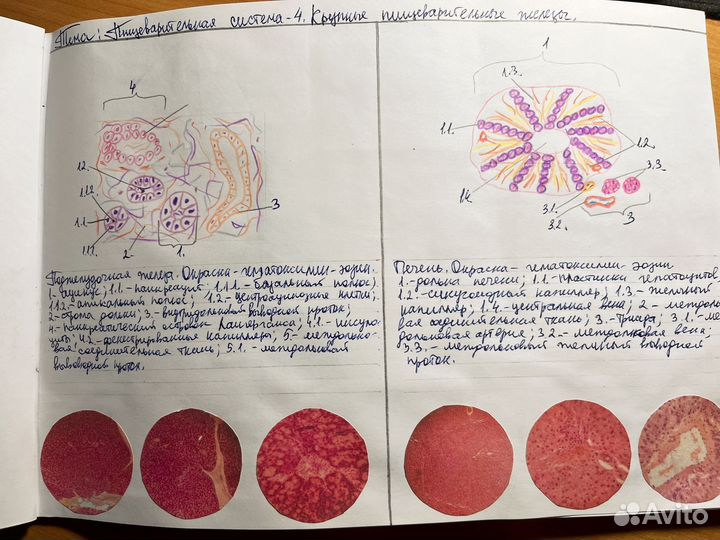 Тема: Пищеварительная система-4. Крупные пищеварительные железы.
4
1.2.
1.1.2.
1.1.
1.1.1.
2
1.
3
Поджелудочная железа. Окраска-гематоксилин-эозин.
1.-ацинус; 1.1.-панкреацит; 1.1.1.-базальный полюс;
1.1.2.-апикальный полюс; 1.2.-центроацинозные клетки;
2-строма дольки; 3.-внутридольковый выводной проток;
4-панкреатический островок Лангерганса; 4.1.-инсуло-
циты; 4.2.-фенестрированные капилляры; 5-междолько-
вая соединительная ткань; 5.1.-междольковый
выводной проток.
1
1.3.
1.1.
1.2.
1.4.
3.3.
3.1.
3.2.
3
Печень. Окраска-гематоксилин-эозин
1.-долька печени; 1.1.-пластинки гепатоцитов,
1.2.-синусоидный капилляр; 1.3.-желчный
капилляр; 1.4.-центральная вена; 2-междоль-
ковая соединительная ткань; 3.-триада; 3.1.-меж-
дольковая артерия; 3.2.-междольковая вена;
3.3.-междольковый желчный выводной
проток.
Avito